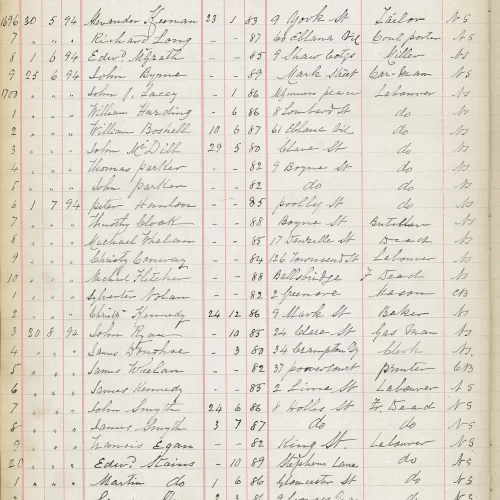 1696 30 5 94 Alexander Keenan 23 1 83 9 York St Tailor NS
7 " " " Richard Long - - 87 60 Eblana Vil Coal porter NS
8 1 6 94 Edwd McGrath - - 85 9 Shaw Cotgs Miller NS
9 25 6 94 John Byrne - - 89 Mark Street Car-Man NS
1700 " " " John J. Lacey - 1 86 Labourer NS
1 " " " William Harding - 6 86 8 Lombard St do NS
2 " " " William Boshell 10 6 87 61 Eblana Vil do NS
3 " " " John McDill 29 5 80 Clare St do NS
4 " " " Thomas Parker - - 82 9 Boyne St do NS
5 " " " John Parker - - 82 do do NS
6 1 7 94 Peter Hanlon - - 85 Poolbeg St do NS
7 " " " Timothy Cloak - - 88 Boyne St Butcher NS
8 " " " Michael Whelan - - 85 17 Denzille St Dead NS
9 " " " Christy Conway - - 84 126 Townsend St Labourer NS
10 " " " Michael Fletcher - - 88 Ballsbridge F Dead NS
1 " " " Sylvester Nolan - - 82 2 Mason CB
2 " " " Christy Kennedy 24 12 86 9 Mark St Baker NS
3 20 8 94 John Ryan - 10 85 24 Clare St Gas Man NS
4 " " " James Donohoe - 3 80 34 Crampton Qy Clerk NS
5 " " " James Whelan - - 82 37 Powerscourt Printer CB
6 " " " James Kennedy - - 85 2 Lime St Labourer NS
7 " " " John Smyth 24 6 86 8 Holles St Fr Dead NS
8 " " " James Smyth 3 7 87 do do NS
9 " " " Francis Egan - - 82 King St Labourer NS
20 " " " Edwd Stains - 10 89 Stephens Lane do NS
1 " " " Martin do 1 6 86 Gloucester St do NS